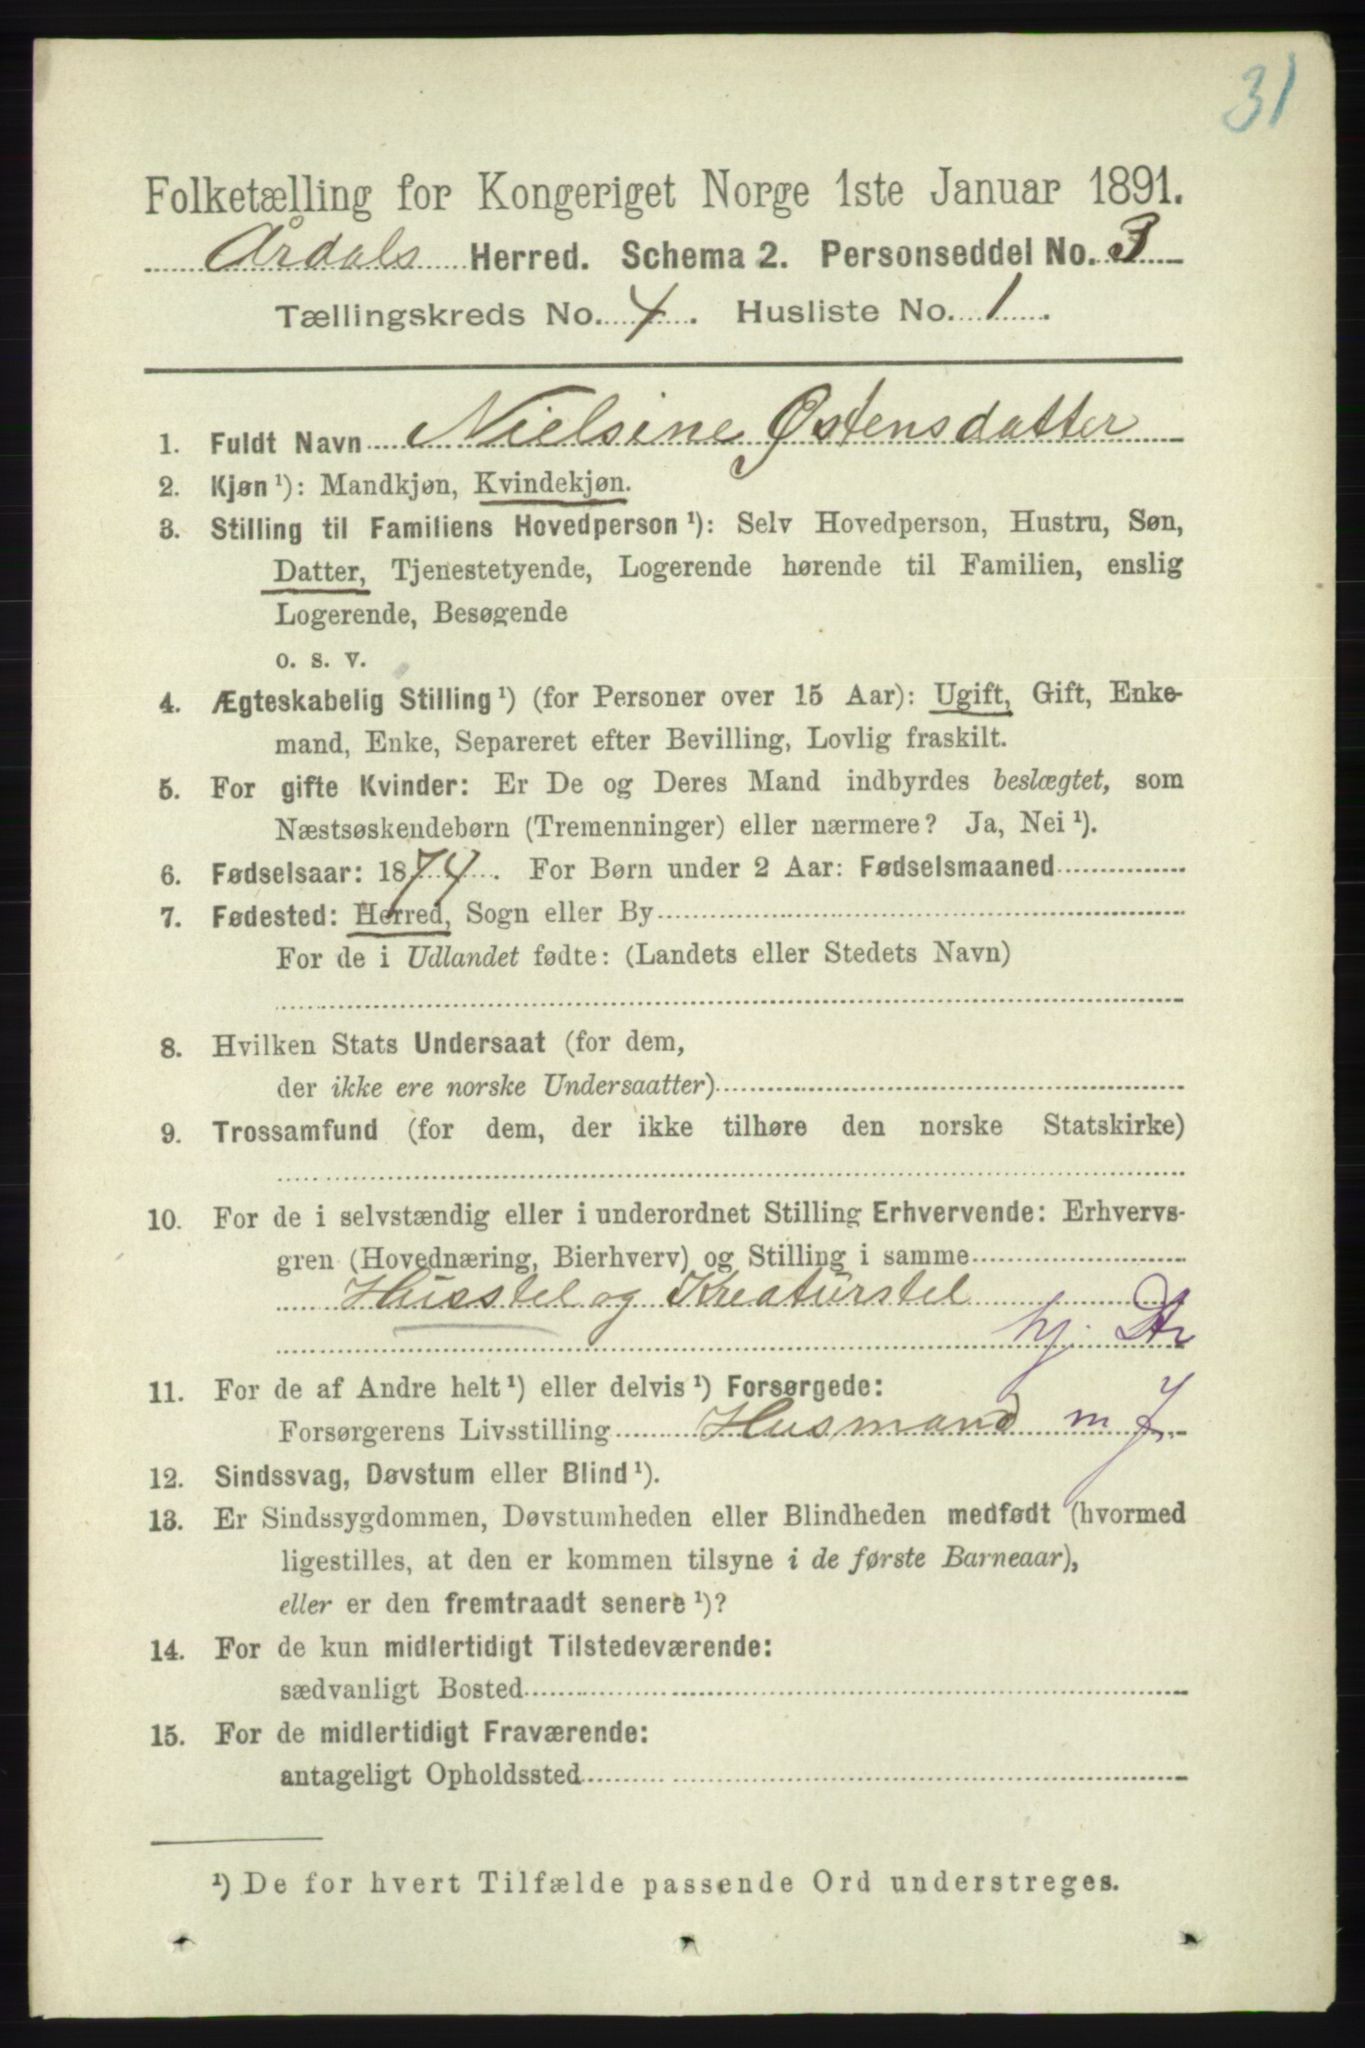 31
Folketælling for Kongeriget Norge 1ste Januar 1891.
Årdals Herred. Schema 2. Personseddel No. 3
Tællingskreds No. 4. Husliste No. 1.
1. Fuldt Navn Nielsine Østensdatter
2. Kjøn ¹): Mandkjøn, Kvindekjøn.
3. Stilling til Familiens Hovedperson ¹): Selv Hovedperson, Hustru, Søn,
Datter, Tjenestetyende, Logerende hørende til Familien, enslig
Logerende, Besøgende
o. s. v.
4. Ægteskabelig Stilling ¹) (for Personer over 15 Aar): Ugift, Gift, Enke-
mand, Enke, Separeret efter Bevilling, Lovlig fraskilt.
5. For gifte Kvinder: Er De og Deres Mand indbyrdes beslægtet, som
Næstsøskendebørn (Tremenninger) eller nærmere? Ja, Nei ¹).
6. Fødselsaar: 1874. For Børn under 2 Aar: Fødselsmaaned
7. Fødested: Herred, Sogn eller By
For de i Udlandet fødte: (Landets eller Stedets Navn)
8. Hvilken Stats Undersaat (for dem,
der ikke ere norske Undersaatter)
9. Trossamfund (for dem, der ikke tilhøre den norske Statskirke)
10. For de i selvstændig eller i underordnet Stilling Erhvervende: Erhvervs-
gren (Hovednæring, Bierhverv) og Stilling i samme
Husstel og Kreaturstel
hj. Dtr
11. For de af Andre helt ¹) eller delvis ¹) Forsørgede:
Forsørgerens Livsstilling Husmand m J
12. Sindssvag, Døvstum eller Blind ¹).
13. Er Sindssygdommen, Døvstumheden eller Blindheden medfødt (hvormed
ligestilles, at den er kommen tilsyne i de første Barneaar),
eller er den fremtraadt senere ¹)?
14. For de kun midlertidigt Tilstedeværende:
sædvanligt Bosted
15. For de midlertidigt Fraværende:
antageligt Opholdssted
¹) De for hvert Tilfælde passende Ord understreges.